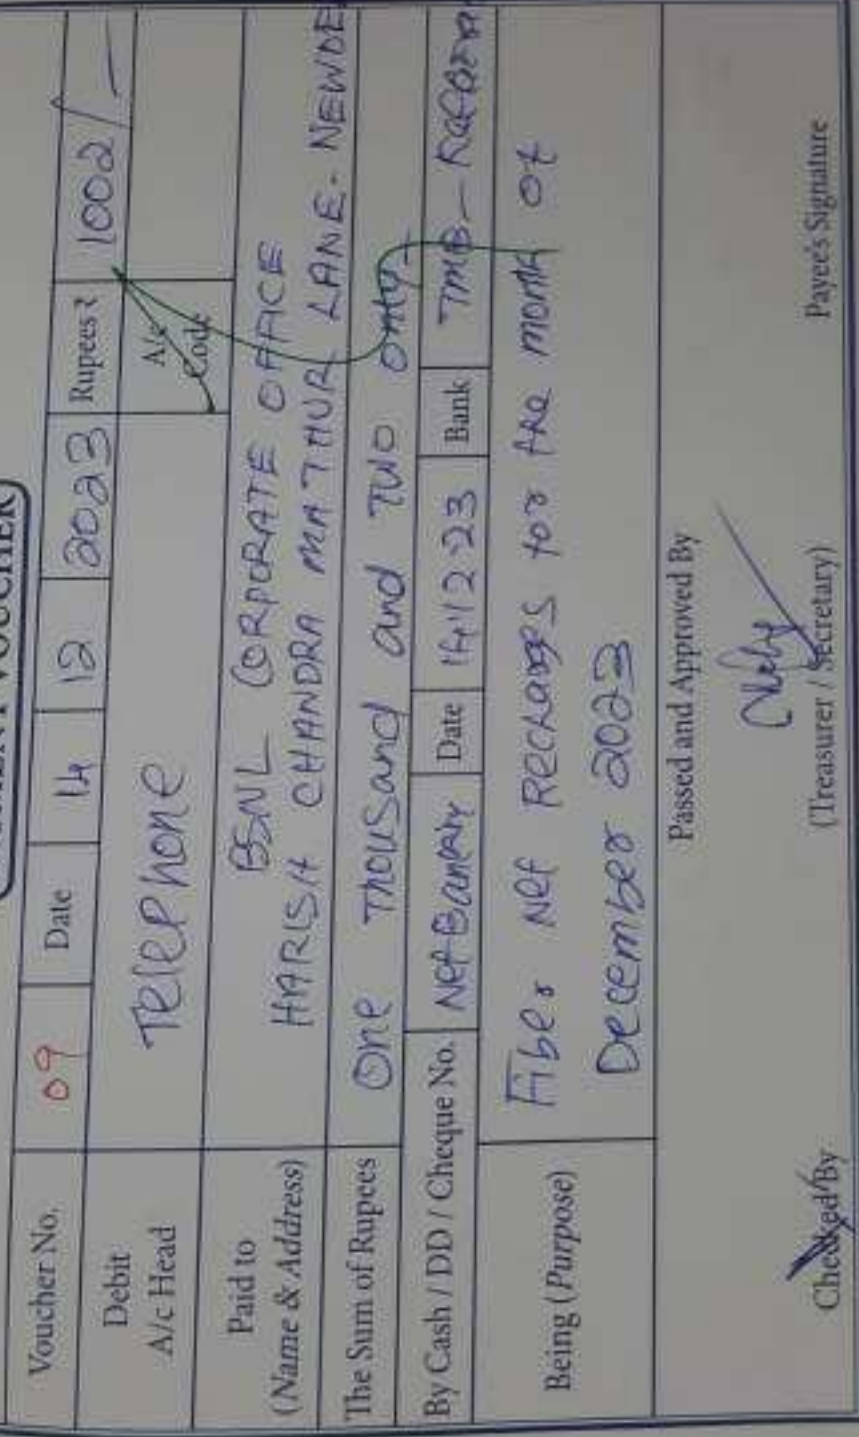 PAYMENT VOUCHER
Voucher No. 09 Date 14 12 2023 Rupees ₹ 1002/-
Debit A/c Head Telephone A/c Code
Paid to BSNL CORPORATE OFFICE
(Name & Address) HARISH CHANDRA MATHUR LANE - NEWDE
The Sum of Rupees One Thousand and Two only -
By Cash / DD / Cheque No. Net Banking Date 14 12 23 Bank TMB -
Being (Purpose) Fiber Net Recharges for the month of
December 2023
Passed and Approved By
Checked By (Treasurer / Secretary) Payee's Signature